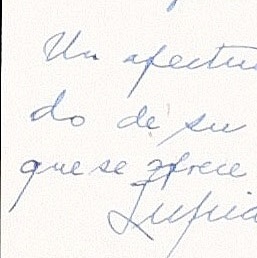 Un afectu
do de su
que se ofrece